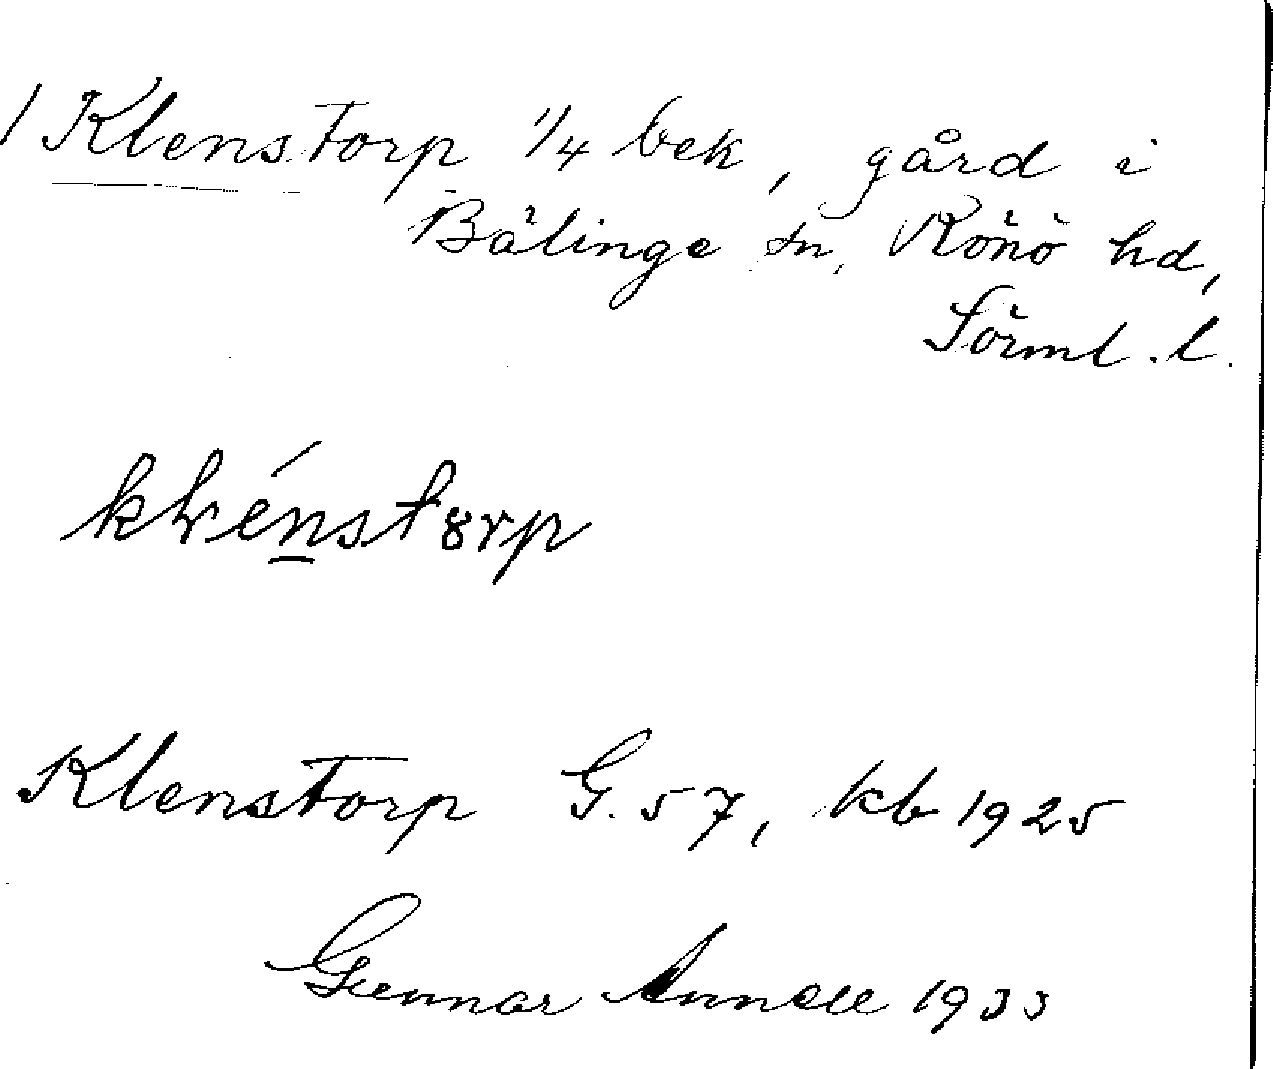 / Klenstorp 1/4 bek, gård i
Bälinge sn, Rönö hd,
Sörml. l.
klénstorp
Klenstorp G. 57, kb 1925
Gunnar Annell 1933